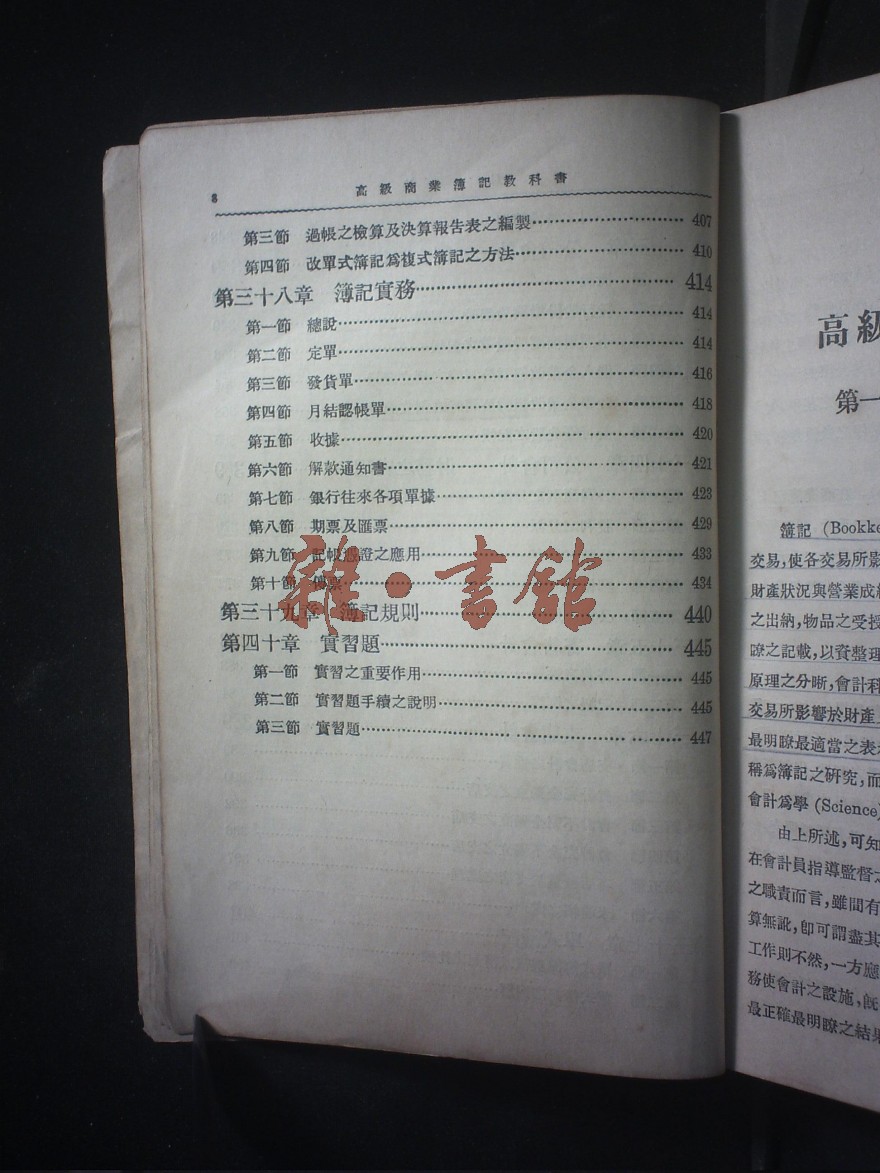 8
高級商業簿記教科書
第三節　過帳之檢算及決算報告表之編製……407
第四節　改單式簿記爲複式簿記之方法……410
第三十八章　簿記實務……414
第一節　總說……414
第二節　定單……414
第三節　發貨單……416
第四節　月結認帳單……418
第五節　收據……420
第六節　解款通知書……421
第七節　銀行往來各項單據……423
第八節　期票及匯票……429
第九節　記帳憑證之應用……433
第十節　傳票……434
第三十九章　簿記規則……440
第四十章　實習題……445
第一節　實習之重要作用……445
第二節　實習題手續之說明……445
第三節　實習題……447
雜·書館
高級
第一
簿記 (Bookke
交易,使各交易所影
財產狀況與營業成績
之出納,物品之受授
瞭之記載,以資整理
原理之分晰,會計科
交易所影響於財產
最明瞭最適當之表
稱爲簿記之研究,而
會計爲學 (Science)
由上所述,可知
在會計員指導監督之
之職責而言,雖間有
算無訛,卽可謂盡其
工作則不然,一方應
務使會計之設施,旣
最正確最明瞭之結果